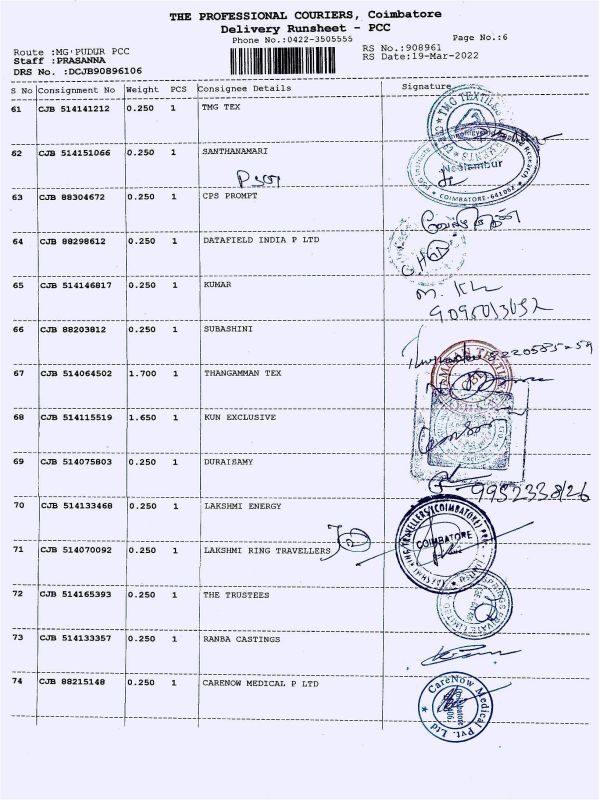 THE PROFESSIONAL COURIERS, Coimbatore
Delivery Runsheet - PCC
Phone No.:0422-3505555
Page No.:6
Route :MG PUDUR PCC
Staff :PRASANNA
DRS No. :DCJB90896106
RS No.:908961
RS Date:19-Mar-2022
S No Consignment No Weight PCS Consignee Details Signature
61 CJB 514141212 0.250 1 TMG TEX
62 CJB 514151066 0.250 1 SANTHANAMARI
Neelambur
COIMBATORE-641062
63 CJB 88304672 0.250 1 CPS PROMPT
64 CJB 88298612 0.250 1 DATAFIELD INDIA P LTD
65 CJB 514146817 0.250 1 KUMAR
66 CJB 88203812 0.250 1 SUBASHINI
67 CJB 514064502 1.700 1 THANGAMMAN TEX
68 CJB 514115519 1.650 1 KUN EXCLUSIVE
69 CJB 514075803 0.250 1 DURAISAMY
70 CJB 514133468 0.250 1 LAKSHMI ENERGY
71 CJB 514070092 0.250 1 LAKSHMI RING TRAVELLERS
COIMBATORE
72 CJB 514165393 0.250 1 THE TRUSTEES
73 CJB 514133357 0.250 1 RANBA CASTINGS
74 CJB 88215148 0.250 1 CARENOW MEDICAL P LTD
CareNow Medical Pvt. Ltd